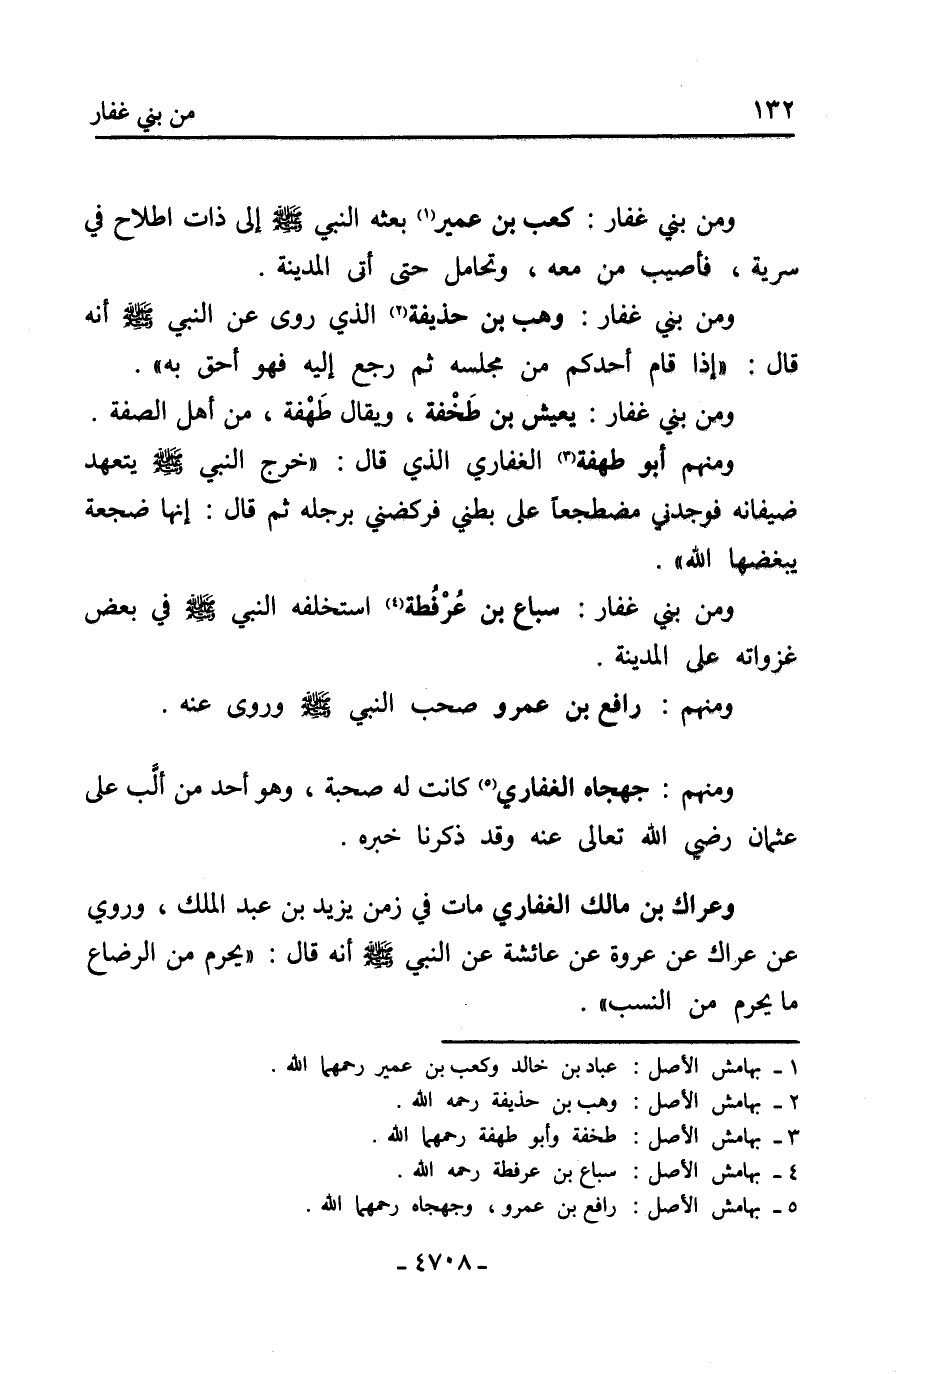 ١٣٢
من بني غفار
ومن بني غفار : كعب بن عمير(١) بعثه النبي ﷺ إلى ذات اطلاح في
سرية ، فأصيب من معه ، وتحامل حتى أتى المدينة .
ومن بني غفار : وهب بن حذيفة(٢) الذي روى عن النبي ﷺ أنه
قال : «إذا قام أحدكم من مجلسه ثم رجع إليه فهو أحق به» .
ومن بني غفار : يعيش بن طَخْفة ، ويقال طَهْفة ، من أهل الصفة .
ومنهم أبو طهفة(٣) الغفاري الذي قال : «خرج النبي ﷺ يتعهد
ضيفانه فوجدني مضطجعاً على بطني فركضني برجله ثم قال : إنها ضجعة
يبغضها الله» .
ومن بني غفار : سباع بن عُرْفُطة(٤) استخلفه النبي ﷺ في بعض
غزواته على المدينة .
ومنهم : رافع بن عمرو صحب النبي ﷺ وروى عنه .
ومنهم : جهجاه الغفاري(٥) كانت له صحبة ، وهو أحد من ألَّب على
عثمان رضي الله تعالى عنه وقد ذكرنا خبره .
وعراك بن مالك الغفاري مات في زمن يزيد بن عبد الملك ، وروي
عن عراك عن عروة عن عائشة عن النبي ﷺ أنه قال : «يحرم من الرضاع
ما يحرم من النسب» .
١ ـ بهامش الأصل : عباد بن خالد وكعب بن عمير رحمهما الله .
٢ ـ بهامش الأصل : وهب بن حذيفة رحمه الله .
٣ ـ بهامش الأصل : طخفة وأبو طهفة رحمهما الله .
٤ ـ بهامش الأصل : سباع بن عرفطة رحمه الله .
٥ ـ بهامش الأصل : رافع بن عمرو ، وجهجاه رحمهما الله .
ـ ٤٧٠٨ ـ